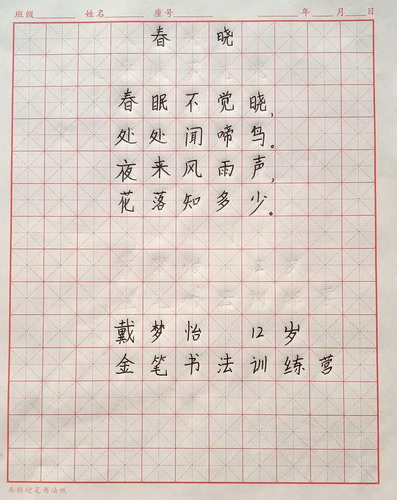 班级 姓名 座号 年 月 日
春 晓
春眠不觉晓，
处处闻啼鸟。
夜来风雨声，
花落知多少。
戴梦怡 12岁
金笔书法训练营
米格硬笔书法纸